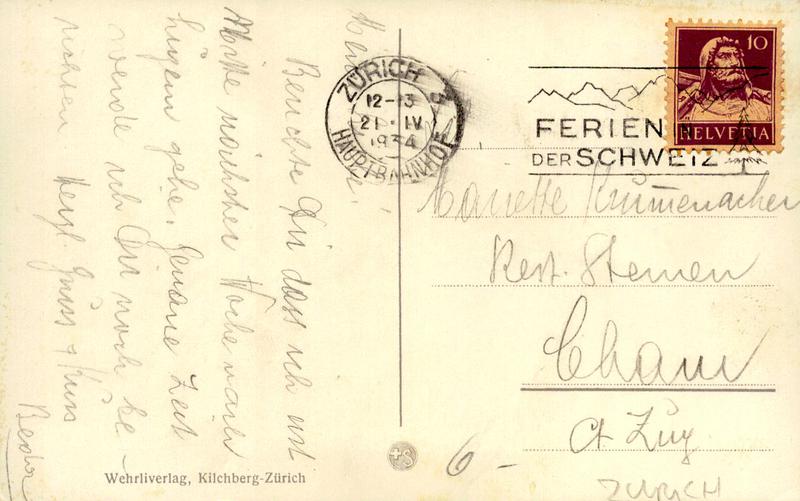 Berichte Dir dass ich erst
Mitte nächster Woche nach
gehe. Genaue Zeit
werde ich Dir noch be-
richten
Herzl. Gruss & Kuss
ZÜRICH
12-13
21. IV
1934
HAUPTBAHNHOF
FERIEN IN
DER SCHWEIZ
10
HELVETIA
Krummenacher
Rest. Sternen
Cham
Ct. Zug
6 -
ZURICH
+S
Wehrliverlag, Kilchberg-Zürich